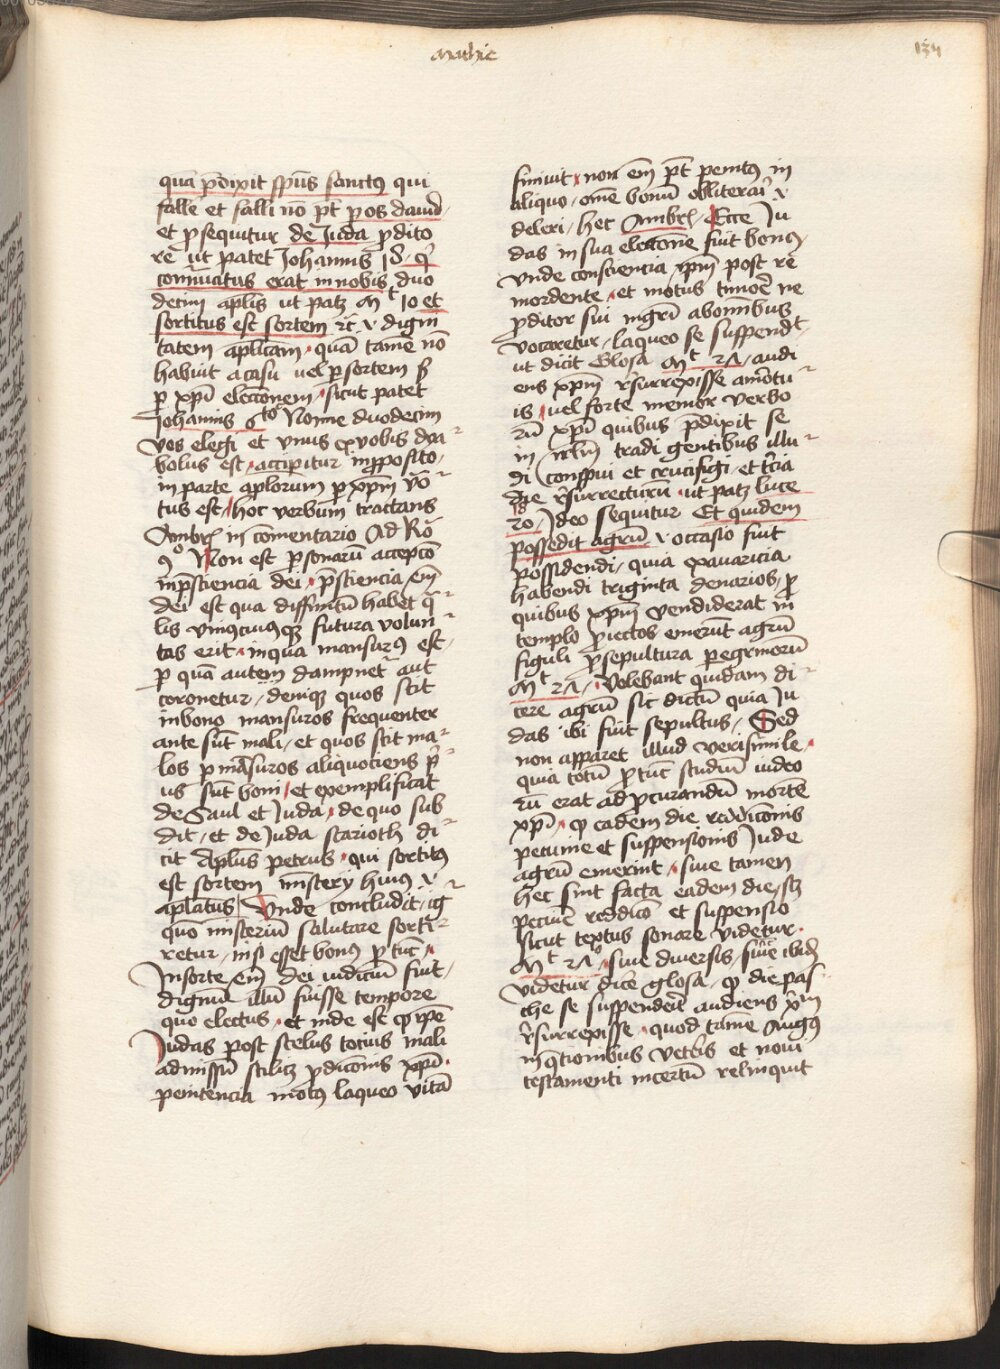 Mathie
134
qua p̄dixit sp̄us sanctus qui
falle et falli nō pt̄ p os dauid
et psequitur de Iuda pdito
re ut patet Iohannis 18 qͥ
connūatus erat in nobis duo
decim apl̄is ut patz Mt 10 et
sortitus est sortem rc̄ v digni
tatem aplīcam quā tamē nō
habuit a casu uel p sortem ſ
p xpī electionem sicut patet
Iohannis 6to Nonne duodecim
vos elegi et vnus ex vobis dya
bolus est accipitur in pposito
in parte aplorum p xpm̄ vo
tus est hoc verbum tractans
Ambr̄ in cōmentario Ad Rō
9o Non est psonarū accepcō
in pr̄sciencia dei pr̄sciencia em̄
dei est qua diffinitū habet q̄
lis vniuscuiusqꝫ futura volun
tas erit in qua mansurꝰ est
p quā autem dampnet̄ aut
coronetur deniqꝫ quos scit
in bono mansuros frequenter
ante sūt mali et quos scit ma
los pmāsuros aliquociens pͥ
us sūt boni et exemplificat
de Saul et Iuda de quo sub
dit et de Iuda scarioth di
cit Aplūs petrus qui sortitꝰ
est sortem mistery huius v
aplatus Vnde concludit ig
quō misteriū salutare sorti
retur nisi esset bonus p tūc
In sorte em̄ dei iudiciū fuit
dignū illū fuisse tempore
quo electus et inde est qꝫ ip̄e
Iudas post scelus tocius mali
admissū scilicꝫ pdicōnis xpī
penitencia motꝰ laqueo vitā
finiuit non em̄ pt̄ penitꝰ in
aliquo om̄e bonū obliterai v
deleri hec Ambr̄ Ecce Iu
das in sua electione fuit bonus
vnde consciencia xpm̄ post re
mordente et motus timoē ne
pditor sui mgrī abomīibus
vocaretur laqueo se suspendt̄
ut dicit Glosa Mt 27 audi
ens xpm̄ r̄surrexisse amōtu
is uel forte memor verbo
rū xpī quibus pdixit se
in irlm̄ tradi gentibus illu
di conspui et crucifigi et t̄cia
die r̄surrecturū ut patz luce
18
20 Ideo sequitur Et quidem
possedit agrū v occasio fuit
possidendi quia ex auaricia
habendi triginta denarios p
quibus xpm̄ vendiderat in
templo piectos emerūt agrū
figuli p sepultura peregrinorū
Mt 27 Volebant quidam di
cere agrū sic dictū quia Iu
das ibi fuit sepultus Sed
non apparet illud verisimile
quia totū ptūc studiū iudeo
rū erat ad pcurandū mortē
xpī qꝫ eadem die reddicōnis
pecunie et suspensionis Iude
agrū emerint siue tamen
hec sint facta eadem die scꝫ
pecunē reddicō et suspensio
sicut textus sonare videtur
Mt 27o siue diuersis siue ibidē
videtur dicē glosa qꝫ die pas
che se suspendeit audiens x̄m
r̄surrexisse quod tamē Augꝰ
in q̄tionibus vetēis et noui
testamenti incertū relinquit